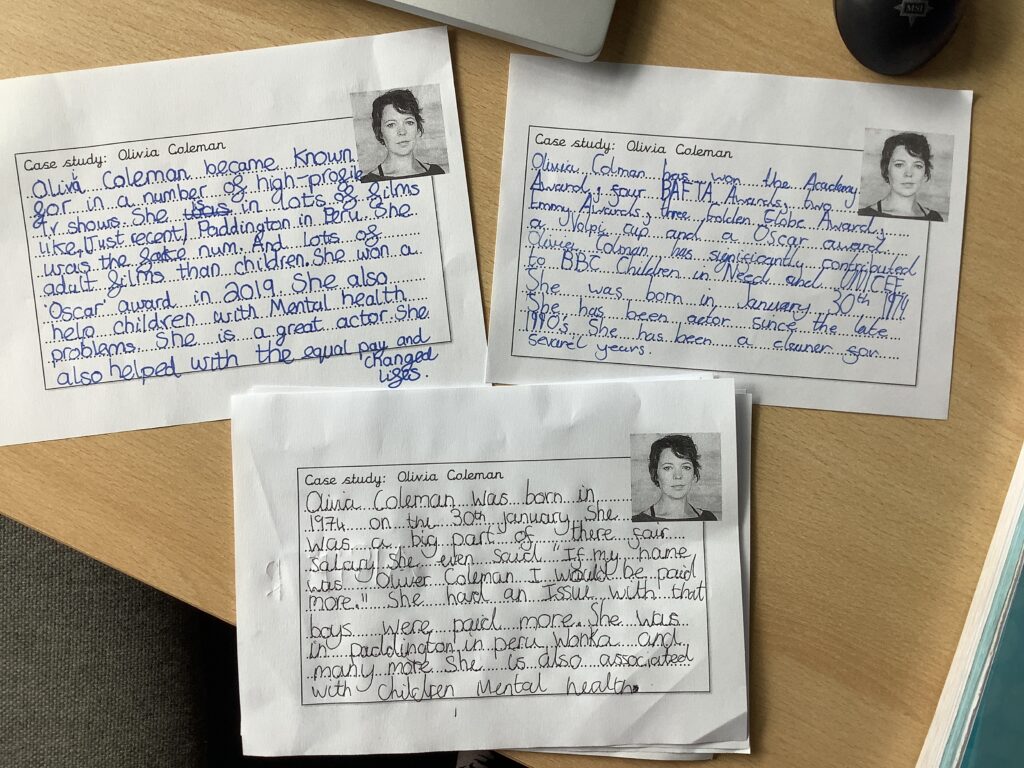 Case study: Olivia Coleman
Olivia Coleman became known
for in a number of high-profile
T.v shows. She in lots of films
like, (Just recent) Paddington in Peru. She
was the num. And lots of
adult films than children. She won a
'Oscar' award in 2019. She also
help children with Mental health
problems. She is a great actor. She
also helped with the equal pay and
changed
lifes.
Case study: Olivia Coleman
Olivia Colman has won the Academy
Award, four BAFTA Awards, two
Emmy Awards, three Golden Globe Award,
a Volpi cup and a Oscar award.
Olivia Colman has significantly contributed
to BBC Children in Need and UNICEF.
She was born in January 30th 1974
She has been actor since the late
1990s. She has been a cleaner for
severel years.
Case study: Olivia Coleman
Olivia Coleman was born in
1974 on the 30th january. She
was a big part of there fair
salary. She even said "If my name
was Oliver Coleman I would be paid
more." She had an Issue with that
boys were paid more. She was
in paddington in peru, Wonka and
many more. She is also associated
with children Mental health.
msi